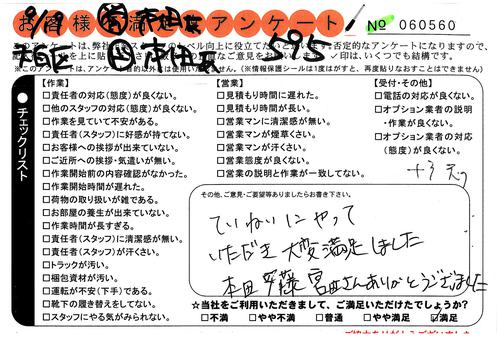 9/19
お客様満足アンケート! № 060560
このアンケートは、弊社
レベル向上に役立てたい
否定的なアンケートになりますので、
印は、いくつでも結構です。
※このアンケートは、アンケート目的以外には使用いた
(※情報保護シールは1度はがすと、再度貼りなおすことはできません)
チェックリスト
【作業】
□責任者の対応(態度)が良くない。
□他のスタッフの対応(態度)が良くない。
□作業を見ていて不安がある。
□責任者(スタッフ)に好感が持てない。
□お客様への挨拶が出来ていない。
□ご近所への挨拶・気遣いが無い。
□作業開始前の内容確認がなかった。
□作業開始時間が遅れた。
□荷物の取り扱いが雑である。
□お部屋の養生が出来ていない。
□作業時間が長すぎる。
□責任者(スタッフ)に清潔感が無い。
□責任者(スタッフ)が汗くさい。
□トラックが汚い。
□梱包資材が汚い。
□運転が不安(下手)である。
□靴下の履き替えをしてない。
□スタッフにやる気がみられない。
【営業】
□見積もり時間に遅れた。
□見積もり時間が長い。
□営業マンに清潔感が無い。
□営業マンが煙草くさい。
□営業マンが汗くさい。
□営業態度が良くない。
□営業の説明と作業が一致してない。
【受付・その他】
□電話の対応が良くない。
□オプション業者の説明
・作業が良くない。
□オプション業者の対応
(態度)が良くない。
その他、ご意見・ご要望等ありましたらお書き下さい。
ていねいにやって
いただき大変満足しました
さんありがとうございました
☆当社をご利用いただきまして、ご満足いただけたでしょうか?
□不満 □やや不満 □普通 □やや満足 ☑満足